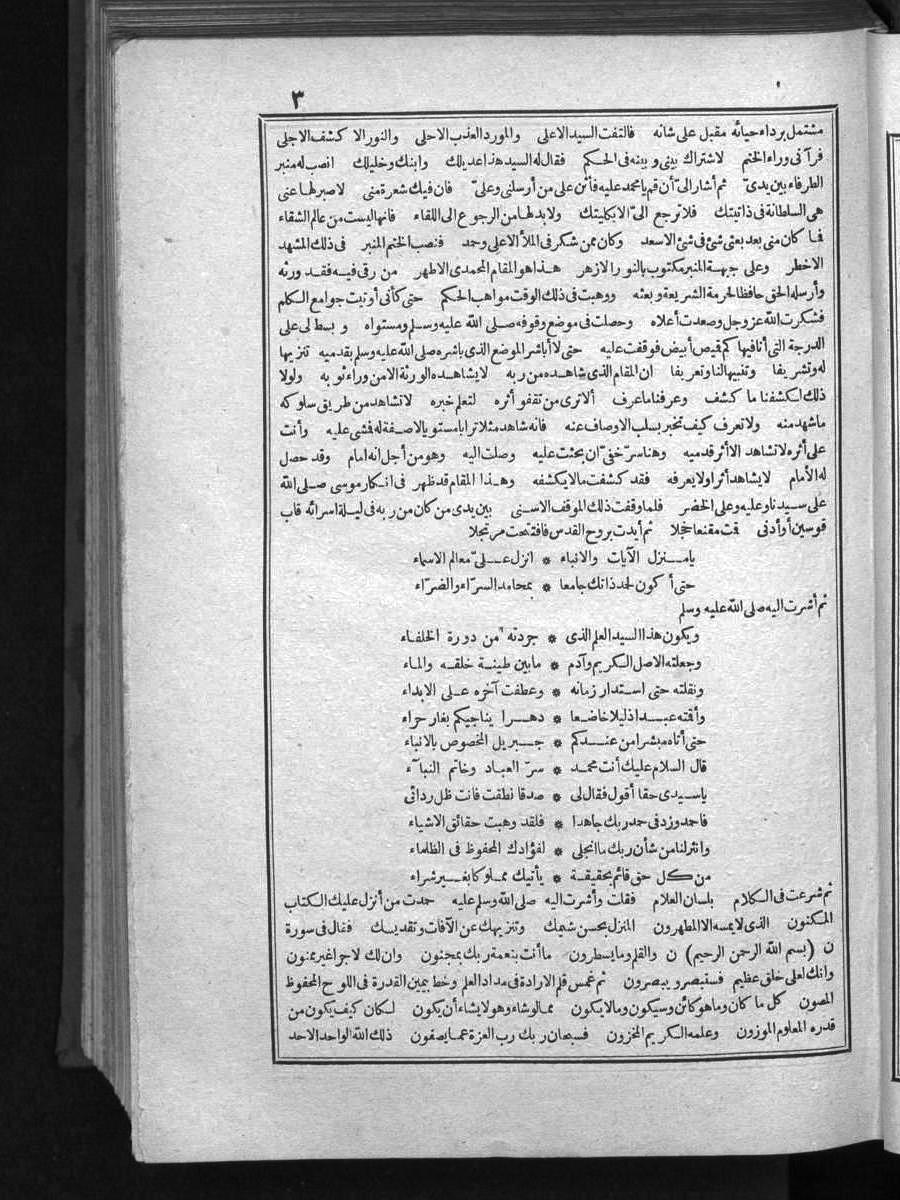 ٣
مشتمل برداء حيائه مقبل على شانه فالتفت السيد الاعلى والمورد العذب الاحلى والنور الا كشف الاجلى
فرآنى وراء الختم لاشتراك بينى وبينه فى الحكم فقال له السيد هذا عديلك وابنك وخليلك انصب له منبر
الطرفاء بين يدىّ ثم أشار الىّ أن قم يا محمد عليه فأثن على من أرسلنى وعلىّ فان فيك شعرة منى لا صبر لها عنى
هى السلطانة فى ذاتيتك فلا ترجع الىّ الا بكليتك ولا بد لها من الرجوع الى اللقاء فانها ليست من عالم الشقاء
فما كان منى بعد بعثى شئ فى شئ الا سعد وكان ممن شكر فى الملأ الاعلى وحمد فنصب الختم المنبر فى ذلك المشهد
الاخطر وعلى جبهة المنبر مكتوب بالنور الازهر هذا هو المقام المحمدى الاطهر من رقى فيه فقد ورثه
وأرسله الحق حافظا لحرمة الشريعة وبعثه ووهبت فى ذلك الوقت مواهب الحكم حتى كأنى أوتيت جوامع الكلم
فشكرت الله عز وجل وصعدت أعلاه وحصلت فى موضع وقوفه صلى الله عليه وسلم ومستواه وبسط لى على
الدرجة التى أنا فيها كم قيص أبيض فوقفت عليه حتى لا أباشر الموضع الذى باشره صلى الله عليه وسلم بقدميه تنزيها
له وتشريفا وتنبيها لنا وتعريفا ان المقام الذى شاهده من ربه لا يشاهده الورثة الا من وراء ثوبه ولولا
ذلك لكشفنا ما كشف وعرفنا ما عرف ألا ترى من تقفو أثره لتعلم خبره لا تشاهد من طريق سلوكه
ما شهد منه ولا تعرف كيف تخبر بسلب الاوصاف عنه فانه شاهد مثلا ترابا مستويا لا صفة له فمشى عليه وأنت
على أثره لا تشاهد الا أثر قدميه وهنا سرّ خفىّ ان بحثت عليه وصلت اليه وهو من أجل انه امام وقد حصل
له الأمام لا يشاهد أثرا ولا يعرفه فقد كشفت ما لا يكشفه وهذا المقام قد ظهر فى انكار موسى صلى الله
على سيدنا وعليه وعلى الخضر فلما وقفت ذلك الموقف الاسنى بين يدى من كان من ربه فى ليلة اسرائه قاب
قوسين أو أدنى قمت مقنعا خجلا ثم أيدت بروح القدس فافتتحت مرتجلا
يا منزل الآيات والانباء * انزل علىّ معالم الاسماء
حتى أكون لحمد ذاتك جامعا * بمحامد السرّاء والضرّاء
ثم أشرت اليه صلى الله عليه وسلم
ويكون هذا السيد العلم الذى * جردته من دورة الخلفاء
وجعلته الاصل الكريم وآدم * ما بين طينة خلقه والماء
ونقلته حتى استدار زمانه * وعطفت آخره على الابداء
وأقته عبدا ذليلا خاضعا * دهرا يناجيكم بغار حراء
حتى أتاه مبشرا من عندكم * جبريل المخصوص بالانباء
قال السلام عليك أنت محمد * سرّ العباد وخاتم النبآء
يا سيدى حقا أقول فقال لى * صدقا نطقت فانت ظل ردائى
فاحمد وزد فى حمد ربك جاهدا * فلقد وهبت حقائق الاشياء
وانثر لنا من شأن ربك ما انجلى * لفؤادك المحفوظ فى الظلماء
من كل حق قائم بحقيقة * يأتيك مملوكا بغير شراء
ثم شرعت فى الكلام بلسان العلام فقلت وأشرت اليه صلى الله وسلم عليه حمدت من أنزل عليك الكتاب
المكنون الذى لا يمسه الا المطهرون المنزل بحسن شيمك وتنزيهك عن الآفات وتقديسك فقال فى سورة
ن (بسم الله الرحمن الرحيم) ن والقلم وما يسطرون ما أنت بنعمة ربك بمجنون وان لك لاجرا غير ممنون
وانك لعلى خلق عظيم فستبصر ويبصرون ثم غمس قلم الارادة فى مداد العلم وخط بيمين القدرة فى اللوح المحفوظ
المصون كل ما كان وما هو كائن وسيكون وما لا يكون مما لو شاء وهو لا يشاء أن يكون لكان كيف يكون من
قدره المعلوم الموزون وعلمه الكريم المخزون فسبحان ربك رب العزة عما يصفون ذلك الله الواحد الاحد